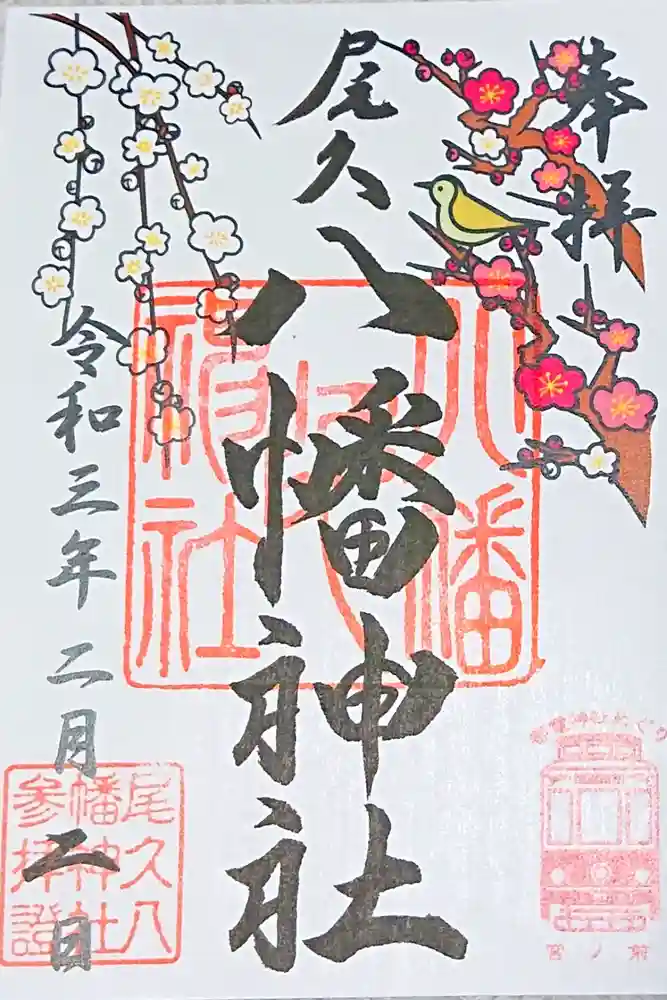 奉拝
尾久
八幡神社
令和三年二月二日
尾久八
幡神社
参拝證
宮ノ前